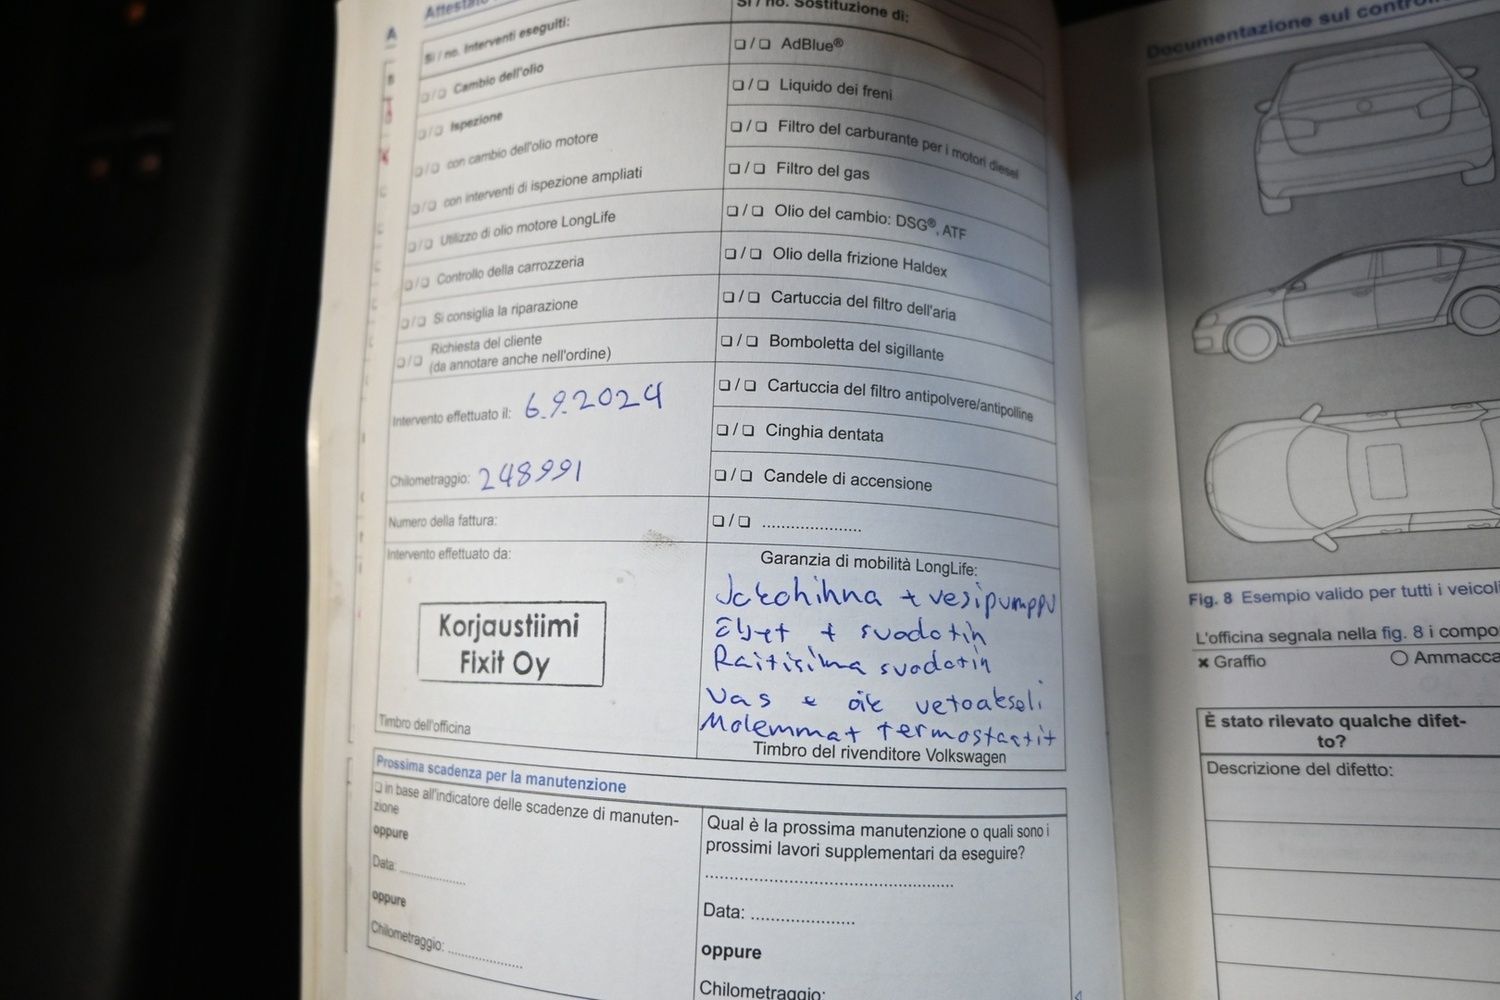 Attestato
Si / no. Interventi eseguiti:
❏ / ❏ Cambio dell'olio
❏ / ❏ Ispezione
❏ / ❏ con cambio dell'olio motore
❏ / ❏ con interventi di ispezione ampliati
❏ / ❏ Utilizzo di olio motore LongLife
❏ / ❏ Controllo della carrozzeria
❏ / ❏ Si consiglia la riparazione
❏ / ❏ Richiesta del cliente
(da annotare anche nell'ordine)
Intervento effettuato il: 6.9.2024
Chilometraggio: 248991
Numero della fattura:
Intervento effettuato da:
Korjaustiimi
Fixit Oy
Timbro dell'officina
Si / no. Sostituzione di:
❏ / ❏ AdBlue®
❏ / ❏ Liquido dei freni
❏ / ❏ Filtro del carburante per i motori diesel
❏ / ❏ Filtro del gas
❏ / ❏ Olio del cambio: DSG®, ATF
❏ / ❏ Olio della frizione Haldex
❏ / ❏ Cartuccia del filtro dell'aria
❏ / ❏ Bomboletta del sigillante
❏ / ❏ Cartuccia del filtro antipolvere/antipolline
❏ / ❏ Cinghia dentata
❏ / ❏ Candele di accensione
❏ / ❏ .....................
Garanzia di mobilità LongLife:
Jakohihna + vesipumppu
Öljyt + suodatin
Raitisilma suodatin
vas + oik vetoakseli
Molemmat termostaatit
Timbro del rivenditore Volkswagen
Prossima scadenza per la manutenzione
❏ in base all'indicatore delle scadenze di manuten-
zione
oppure
Data: ..................
oppure
Chilometraggio: ..................
Qual è la prossima manutenzione o quali sono i
prossimi lavori supplementari da eseguire?
..................................................
Data: .....................
oppure
Chilometraggio:
Documentazione sul
Fig. 8 Esempio valido per tutti i
L'officina segnala nella fig. 8 i
× Graffio
○
È stato rilevato qualche difet-
to?
Descrizione del difetto: